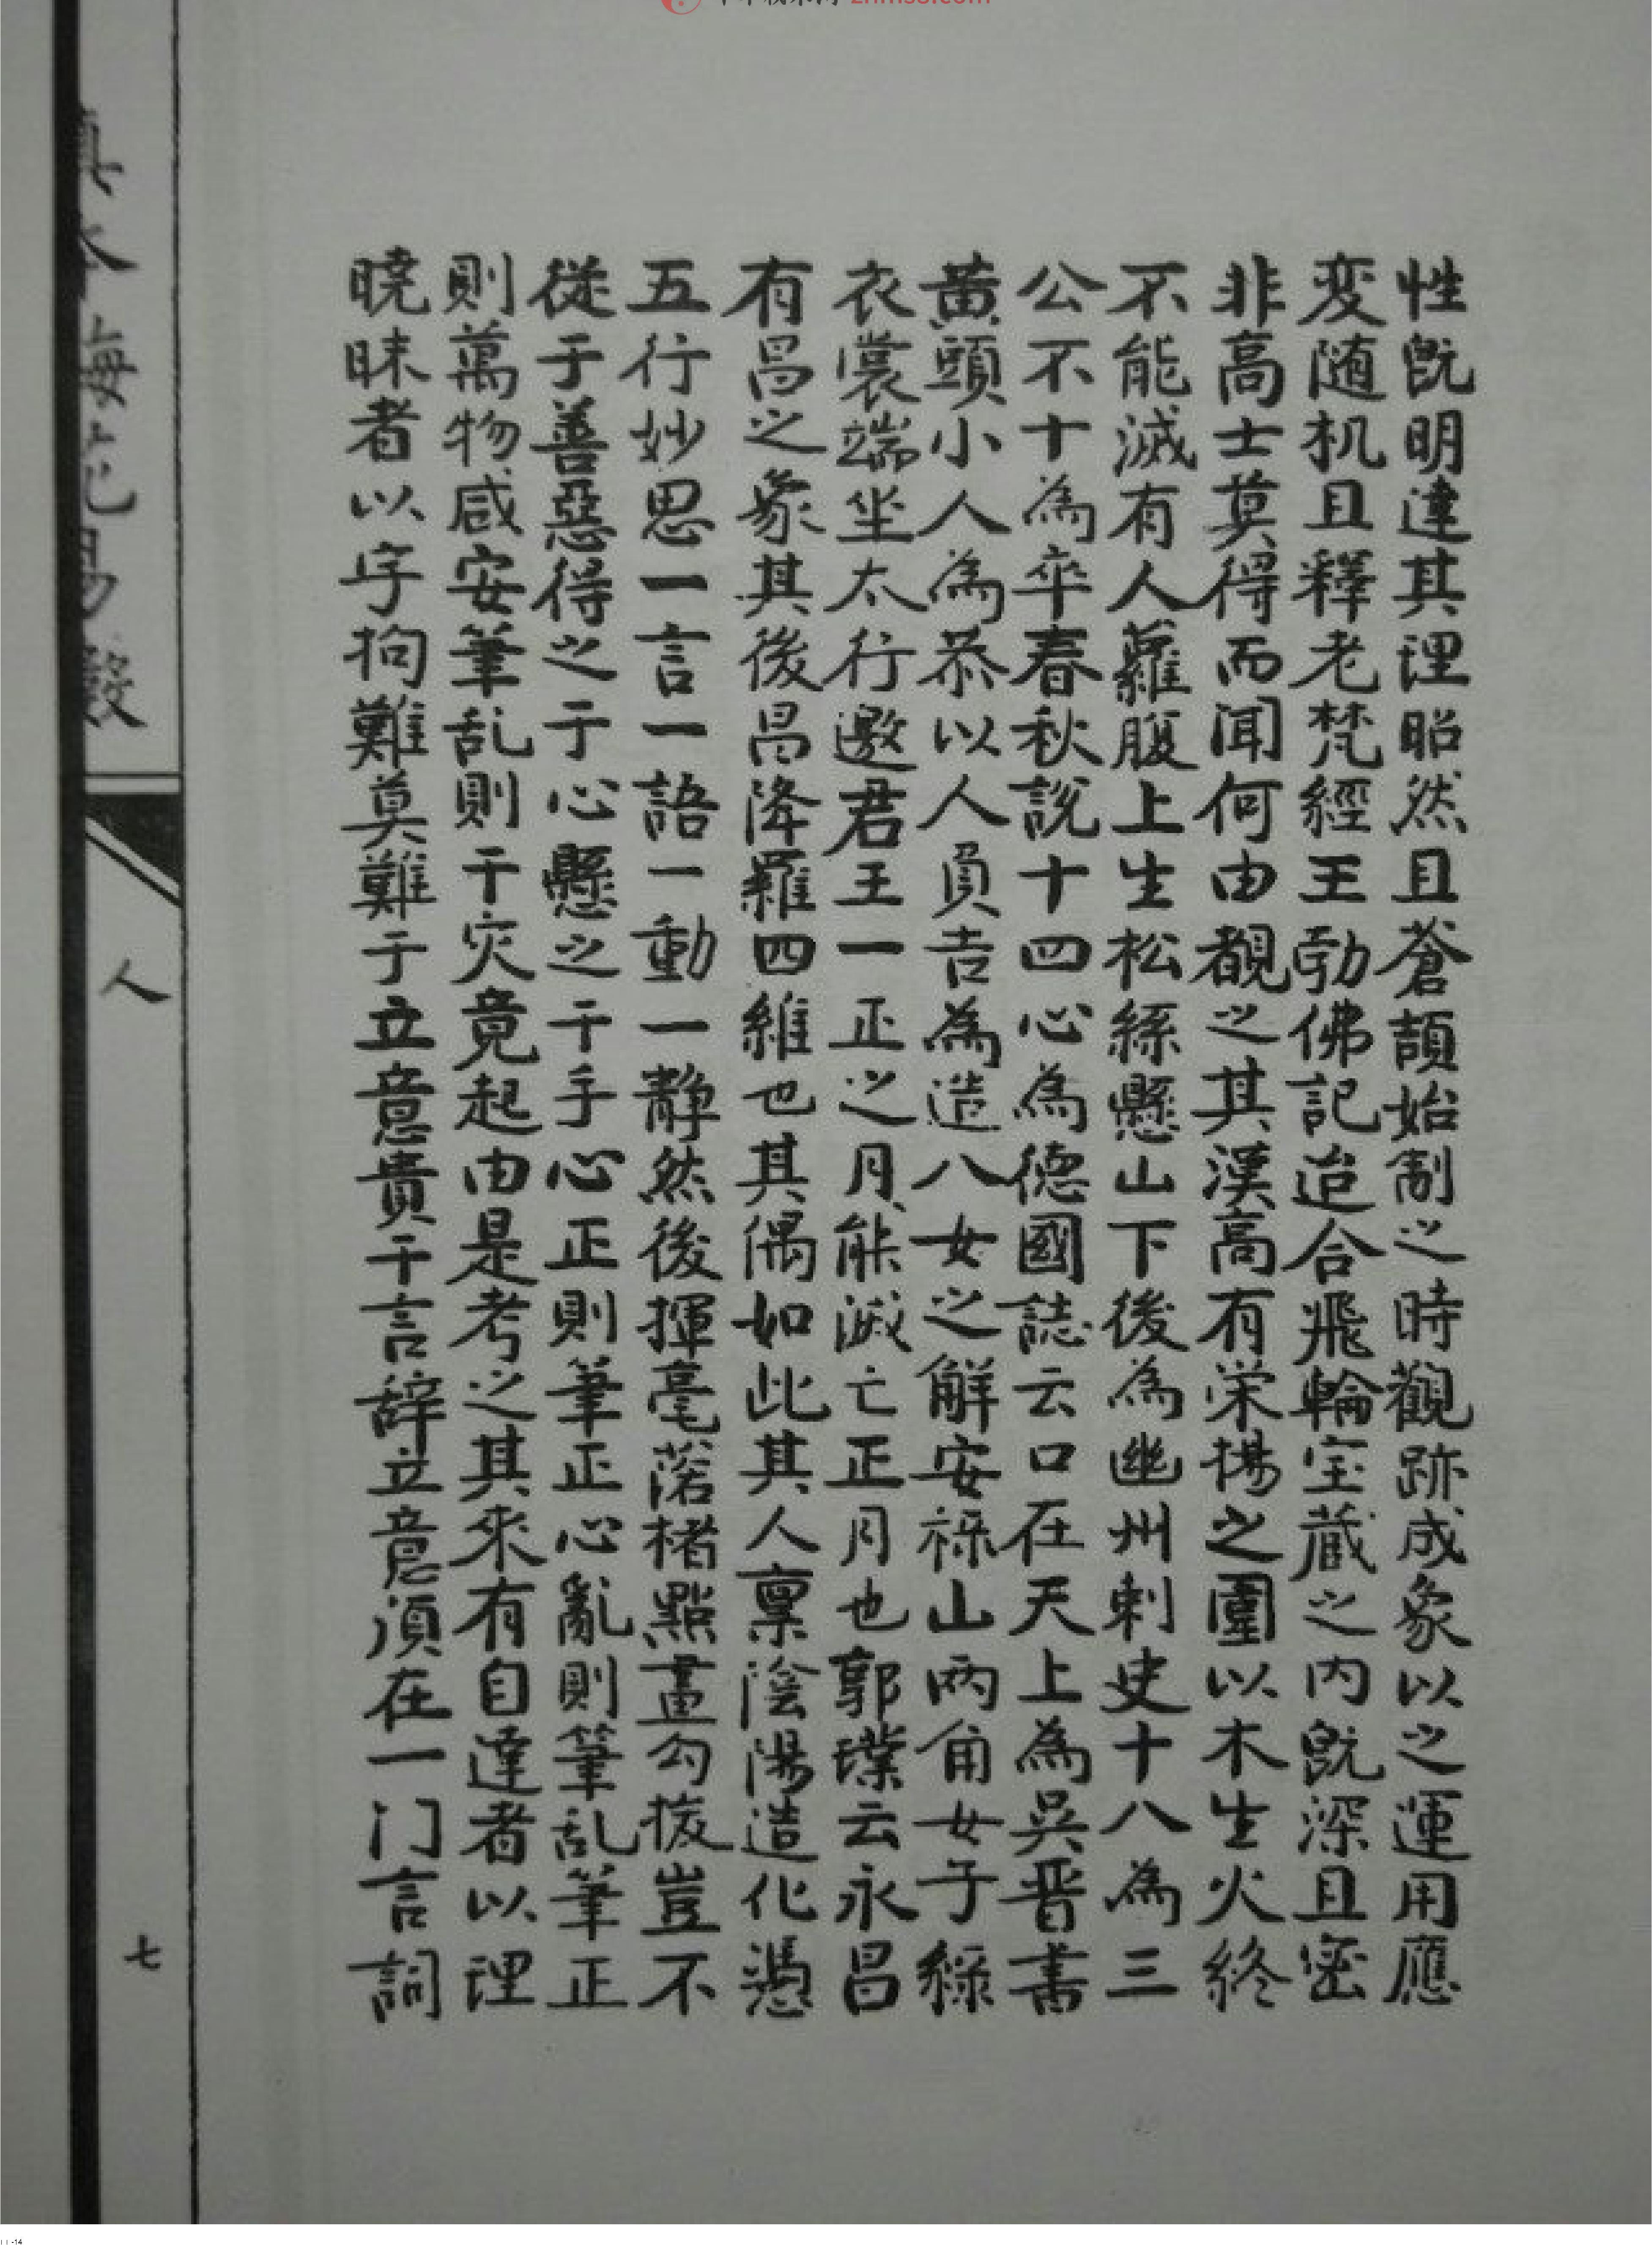 性既明達其理昭然且蒼頡始制之時觀跡成象以之運用應
変随机且釋老梵經王勃佛記迨合飛輪宝蔵之内既深且密
非高士莫得而闻何由覩之其漢高有栄揚之圍以木生火終
不能滅有人蘿腹上生松絲懸山下後為幽州刺史十八為三
公不十為卒春秋説十四心為德國誌云口在天上為吳晋書
黄頭小人為恭以人負吉為造八女之解安祿山两角女子綠
衣裳端坐太行邀君王一正之月能滅亡正月也郭璞云永昌
有昌之象其後昌降羅四維也其偶如此其人禀陰陽造化憑
五行妙思一言一語一動一静然後揮毫落楮點畫勾拔豈不
從于善惡得之于心懸之于手心正則筆正心亂則筆乱筆正
則萬物咸安筆乱則干灾竟起由是考之其來有自達者以理
曉昧者以字拘難莫難于立意貴于言辞立意須在一门言詞
人
七